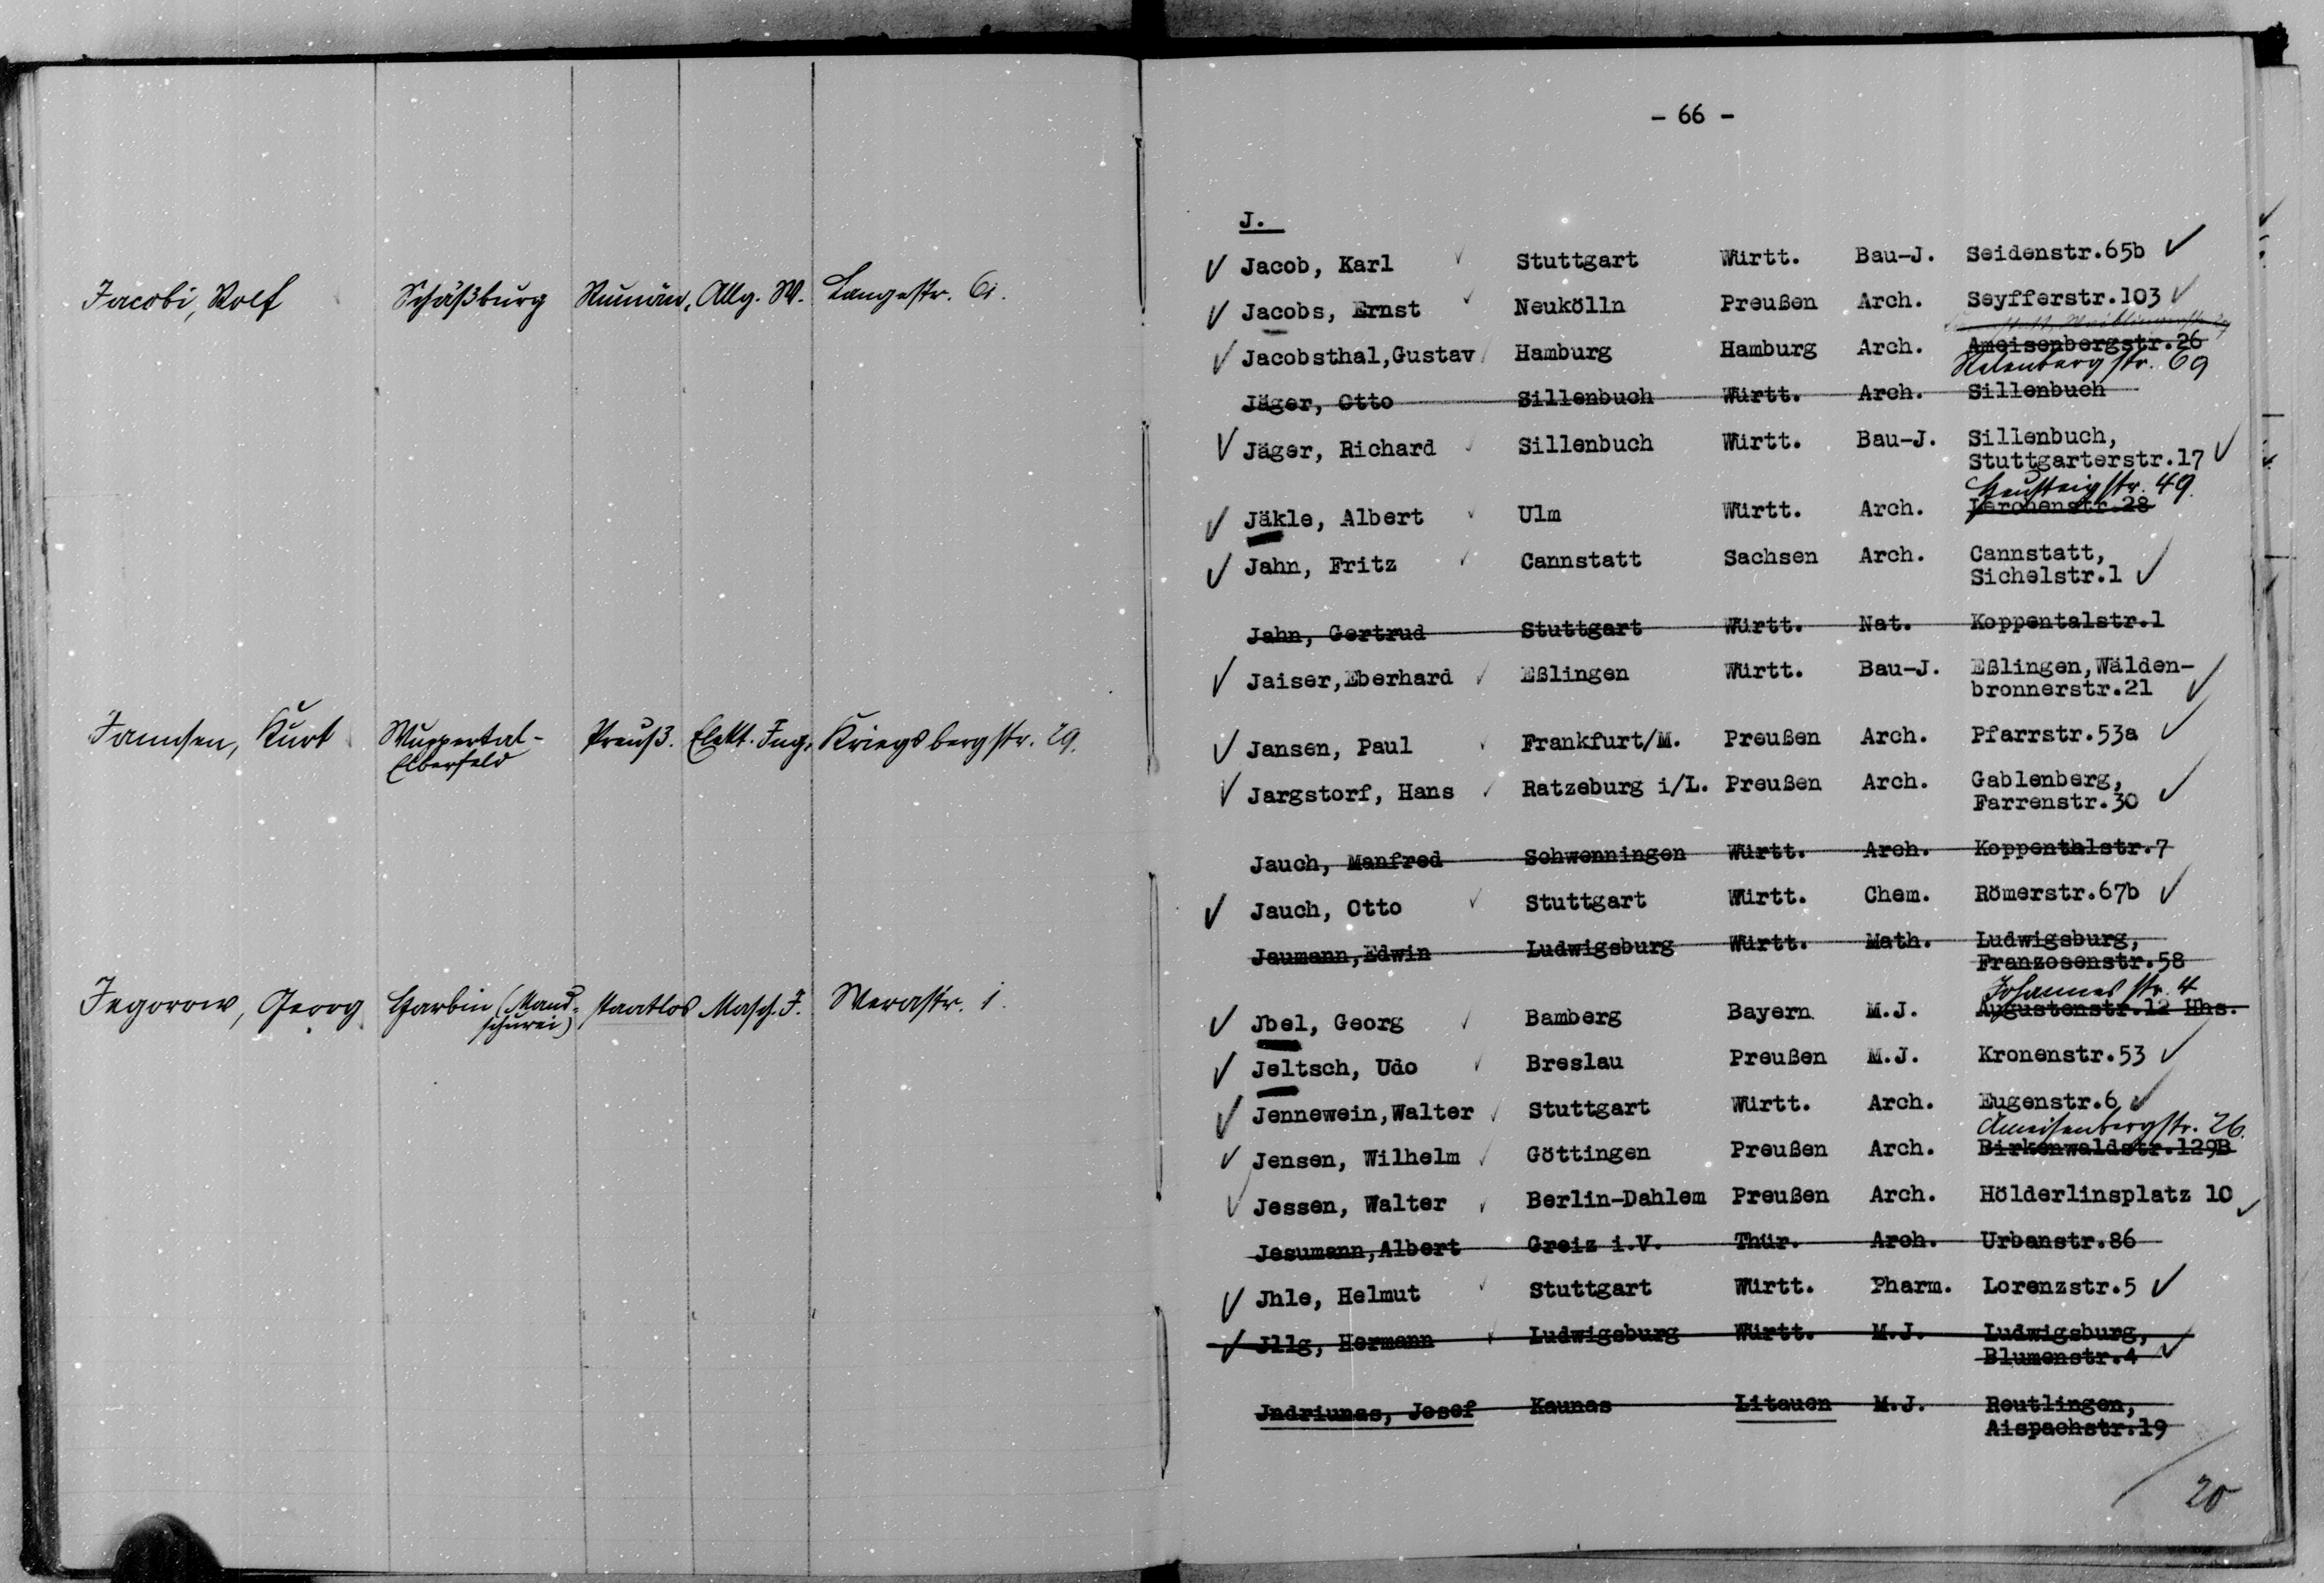 Jacobi, Rolf Schäßburg Rumän. Allg. W. Langestr. 6.
Jannsen, Kurt Wuppertal- Preuß. Elekt. Ing. Kriegsbergstr. 29.
Elberfeld
Jegorow, Georg Harbin (Mand- staatlos Masch. I. Werastr. 1.
schurei)
- 66 -
J.
Jacob, Karl Stuttgart Württ. Bau-J. Seidenstr.65b
Jacobs, Ernst Neukölln Preußen Arch. Seyfferstr.103
Jacobsthal,Gustav Hamburg Hamburg Arch. Ameisenbergstr.26
Relenbergstr. 69
Jäger, Otto Sillenbuch Württ. Arch. Sillenbuch
Jäger, Richard Sillenbuch Württ. Bau-J. Sillenbuch,
Stuttgarterstr.17
Heusteigstr. 49.
Jäkle, Albert Ulm Württ. Arch. Lerchenstr.28
Jahn, Fritz Cannstatt Sachsen Arch. Cannstatt,
Sichelstr.1
Jahn, Gertrud Stuttgart Württ. Nat. Koppentalstr.1
Jaiser,Eberhard Eßlingen Württ. Bau-J. Eßlingen,Wälden-
bronnerstr.21
Jansen, Paul Frankfurt/M. Preußen Arch. Pfarrstr.53a
Jargstorf, Hans Ratzeburg i/L. Preußen Arch. Gablenberg,
Farrenstr.30
Jauch, Manfred Schwenningen Württ. Arch. Koppenthalstr.7
Jauch, Otto Stuttgart Württ. Chem. Römerstr.67b
Jaumann,Edwin Ludwigsburg Württ. Math. Ludwigsburg,
Franzosenstr.58
Johannesstr. 4
Jbel, Georg Bamberg Bayern M.J. Augustenstr.12 Hhs.
Jeltsch, Udo Breslau Preußen M.J. Kronenstr.53
Jennewein,Walter Stuttgart Württ. Arch. Eugenstr.6
Ameisenbergstr. 26.
Jensen, Wilhelm Göttingen Preußen Arch. Birkenwaldstr.129B
Jessen, Walter Berlin-Dahlem Preußen Arch. Hölderlinsplatz 10
Jesumann,Albert Greiz i.V. Thür. Arch. Urbanstr.86
Jhle, Helmut Stuttgart Württ. Pharm. Lorenzstr.5
Jllg, Hermann Ludwigsburg Württ. M.J. Ludwigsburg,
Blumenstr.4
Jndriunas, Josef Kaunas Litauen M.J. Reutlingen,
Aispachstr.19
20